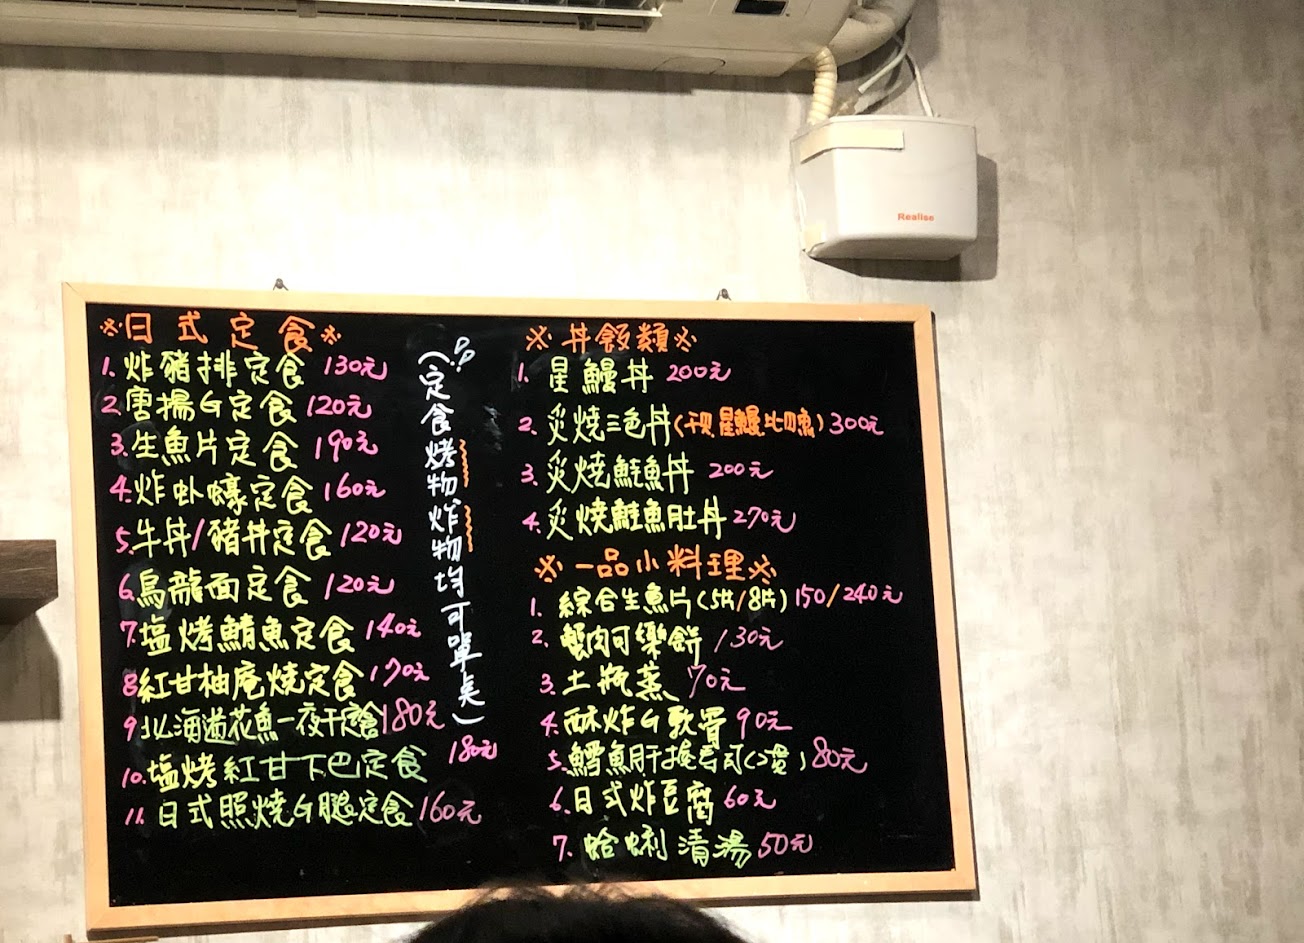 Realise
※日式定食※
1. 炸豬排定食 130元
2. 唐揚G定食 120元
3. 生魚片定食 190元
4. 炸虲蠔定食 160元
5. 牛丼/豬丼定食 120元
6. 烏龍面定食 120元
7. 塩烤鯖魚定食 140元
8. 紅甘柚庵燒定食 170元
9. 北海道花魚一夜干定食 180元
10. 塩烤紅甘下巴定食 180元
11. 日式照燒G腿定食 160元
(定食烤物炸物均可單點)
※丼飯類※
1. 星鰻丼 200元
2. 炙燒三色丼(干貝 星鰻 比目魚) 300元
3. 炙燒鮭魚丼 200元
4. 炙燒鮭魚肚丼 270元
※一品小料理※
1. 綜合生魚片(5片/8片) 150/240元
2. 蟹肉可樂餅 130元
3. 土瓶蒸 70元
4. 酥炸G軟骨 90元
5. 鱈魚肝握寿司(2貫) 80元
6. 日式炸豆腐 60元
7. 蛤蜊清湯 50元